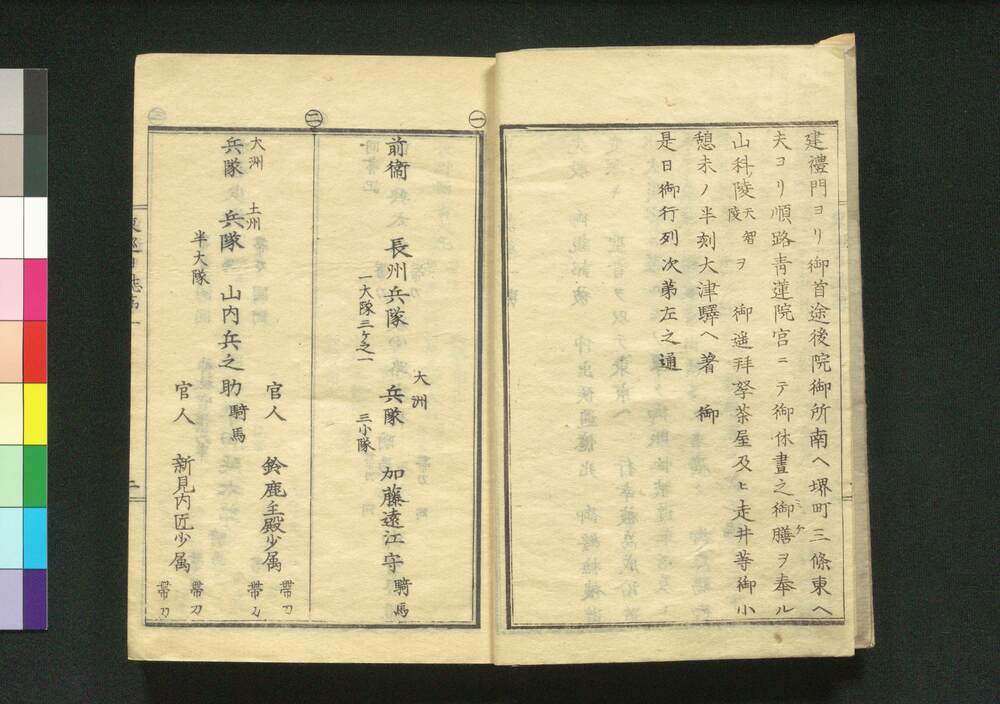 建禮門ヨリ御首途後院御所南ヘ堺町三條東ヘ
夫ヨリ順路青蓮院宮ニテ御休晝之御膳ヲ奉ル
山科陵天智陵ヲ 御遥拝拏茶屋及ヒ走井等御小
憩未ノ半刻大津驛ヘ著 御
是日御行列次第左之通
一
前衞 長州兵隊 一大隊三ケ之一 大洲 兵隊 三小隊 加藤遠江守 騎馬
二
大洲 兵隊 土州 兵隊 半大隊 山内兵之助 騎馬
官人 鈴鹿主殿少属 帶刀 帶刀
官人 新見内匠少属 帶刀 帶刀